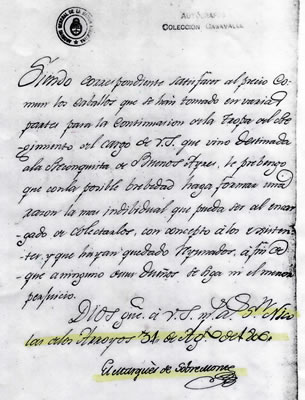 COLECCIÓN CASAVALLE
Siendo correspondiente satisfacer al precio co-
mun los caballos que se han tomado en varias
partes para la continuacion de la Tropa del
cargo de V.S. que vino destinada
a la Reconquista de Buenos Ayres, prebengo
que con la posible brebedad haga formar una
razon la mas individual que pueda ser al encar-
gado de colectarlos, con concepto a los
y que hayan quedado Reyunados, a fin de
que a ninguno de sus Dueños se siga ni el menor
perjuicio.
DIOS gue. a V.S. m. a. Sn. Nico-
las de los Arroyos 31 de Agto. de 1806.
El Marqués de Sobremonte